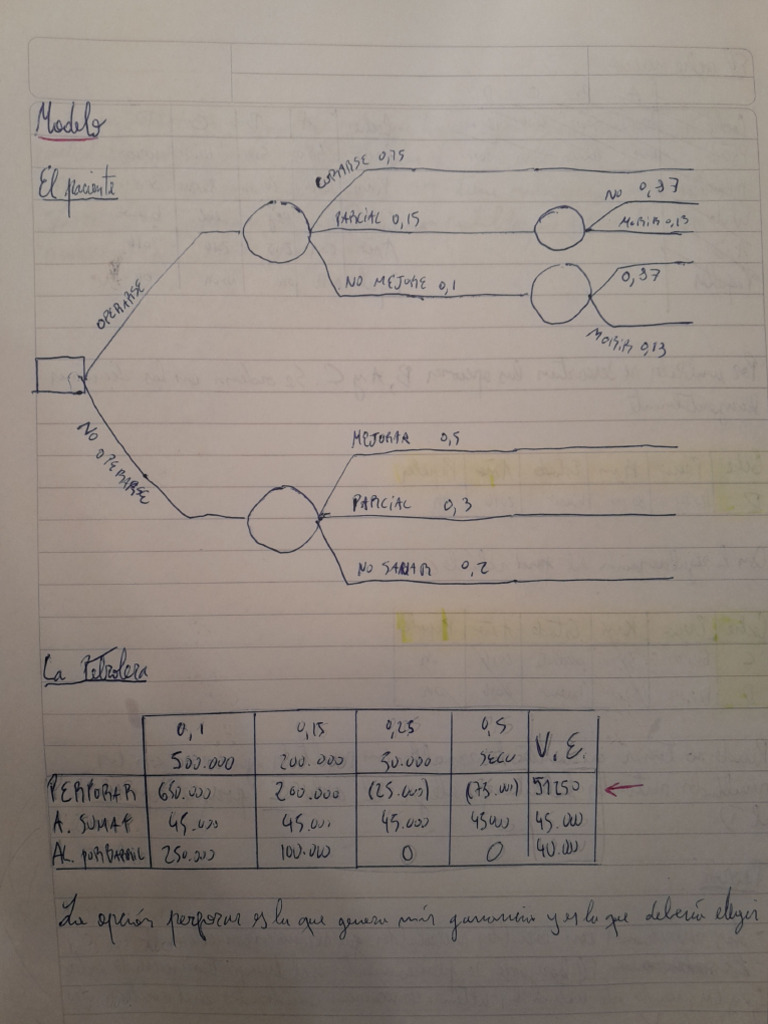 Modelo
El paciente
CURARSE 0,75
NO 0,87
PARCIAL 0,15
MORIR 0,13
NO MEJORE 0,1
0,87
MORIR 0,13
OPERARSE
NO OPERARSE
MEJORAR 0,5
PARCIAL 0,3
NO SANAR 0,2
La Petrolera
0,1 0,15 0,25 0,5 V.E.
500.000 200.000 50.000 SECO
PERFORAR 650.000 200.000 (25.000) (75.000) 51250
A. SUMAF 45.000 45.000 45.000 45000 45.000
AL. POR BARRIL 250.000 100.000 0 0 40.000
La opción perforar es la que genera más ganancia y es la que debería elegir